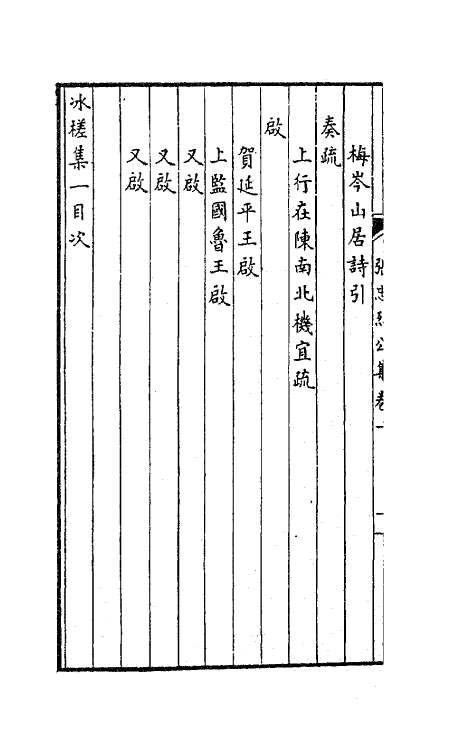 張忠烈公集卷一
梅岑山居詩引
奏疏
上行在陳南北機宜疏
啟
賀延平王啟
上監國魯王啟
又啟
又啟
又啟
冰槎集一目次